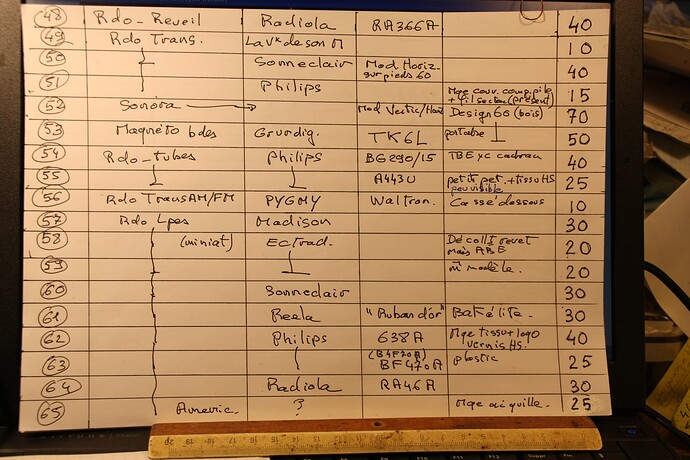 48 Rdo-Reveil Radiola RA366A 40
49 Rdo Trans. La Vx de son M 10
50 Sonneclair Mod. Horiz. sur pieds 60 40
51 Philips Mqe couv. comp. pile + fil secteur (présent) 15
52 Sonora Mod Vertic/Horiz Design 60 (bois) 70
53 Magnéto bdes Grundig. TK6L portable 50
54 Rdo-tubes Philips BG290/15 TBE yc cadran 40
55 A443U petite pet. + tissu HS peu visible 25
56 Rdo Trans AM/FM PYGMY Waltron. Cassé dessous 10
57 Rdo Lpes Madison 30
58 (miniat) Ectrad. Décollt revet mais ABE 20
59 m modèle. 20
60 Sonneclair 30
61 Reela "Ruban d'or" Bakélite. 30
62 Philips 638A Mqe tissu + logo vernis HS. 40
63 (B4F70A) BF470A plastic 25
64 Radiola RA46A 30
65 ? Mqe aiguille. 25